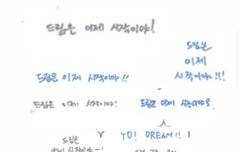 드림은 이제 시작이야!
드림은
이제
시작이야!!!
드림은 이제 시작이야!!
드림은 이제 시작이야!
드림은 이제 시작이야!
YO! DREAM!!
드림은
이제 시작이야~!